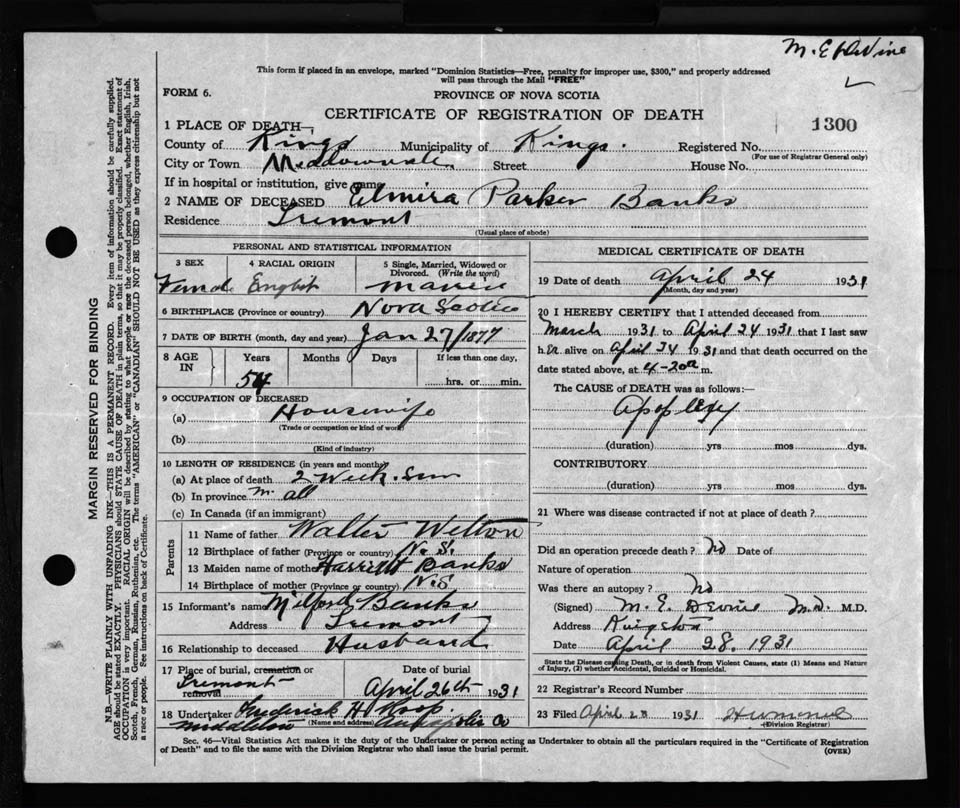 M. E. Devine
This form if placed in an envelope, marked "Dominion Statistics—Free, penalty for improper use, $300," and properly addressed
will pass through the Mail "FREE"
FORM 6.
PROVINCE OF NOVA SCOTIA
CERTIFICATE OF REGISTRATION OF DEATH
1300
1 PLACE OF DEATH—
County of Kings Municipality of Kings. Registered No.
(For use of Registrar General only)
City or Town Meadowvale Street House No.
If in hospital or institution, give name
2 NAME OF DECEASED Elmira Parker Banks
Residence Tremont
(Usual place of abode)
PERSONAL AND STATISTICAL INFORMATION
3 SEX 4 RACIAL ORIGIN 5 Single, Married, Widowed or
Divorced. (Write the word)
Female English Married
6 BIRTHPLACE (Province or country) Nova Scotia
7 DATE OF BIRTH (month, day and year) Jan 27/1877
8 AGE IN Years Months Days If less than one day,
54 hrs. or min.
9 OCCUPATION OF DECEASED
(a) Housewife
(Trade or occupation or kind of work)
(b)
(Kind of industry)
10 LENGTH OF RESIDENCE (in years and months)
(a) At place of death 2 Week
(b) In province all
(c) In Canada (if an immigrant)
Parents
11 Name of father Walter Welton
12 Birthplace of father (Province or country) N. S.
13 Maiden name of mother Harriett Banks
14 Birthplace of mother (Province or country) N.S
15 Informant's name Milford Banks
Address Tremont
16 Relationship to deceased Husband
17 Place of burial, cremation or Date of burial
Tremont
removal April 26th 1931
18 Undertaker Frederick H
(Name and address) Annapolis Co
MEDICAL CERTIFICATE OF DEATH
19 Date of death April 24 1931
(Month, day and year)
20 I HEREBY CERTIFY that I attended deceased from
March 1931 to April 24 1931 that I last saw
h er alive on April 24 1931 and that death occurred on the
date stated above, at 4-20 m.
The CAUSE OF DEATH was as follows:—
Apoplexy
(duration) yrs mos dys.
CONTRIBUTORY
(duration) yrs mos dys.
21 Where was disease contracted if not at place of death?
Did an operation precede death? No Date of
Nature of operation
Was there an autopsy? No
(Signed) M. E. Devine M.D. M.D.
Address Kingston
Date April 28. 1931
State the Disease causing Death, or in death from Violent Causes, state (1) Means and Nature
of Injury, (2) whether Accidental, Suicidal or Homicidal.
22 Registrar's Record Number
23 Filed April 1931
(Division Registrar)
Sec. 46—Vital Statistics Act makes it the duty of the Undertaker or person acting as Undertaker to obtain all the particulars required in the "Certificate of Registration
of Death" and to file the same with the Division Registrar who shall issue the burial permit.
(OVER)
MARGIN RESERVED FOR BINDING
N.B.—WRITE PLAINLY WITH UNFADING INK—THIS IS A PERMANENT RECORD. Every item of information should be carefully supplied.
AGE should be stated EXACTLY. PHYSICIANS should STATE CAUSE OF DEATH in plain terms, so that it may be properly classified. Exact statement of
OCCUPATION is very important. RACIAL ORIGIN will be described by stating to what people or race the deceased person belonged, whether English, Irish,
Scotch, French, German, Russian, Ruthenian, etc. The terms "AMERICAN" or "CANADIAN" SHOULD NOT BE USED as they express citizenship but not
a race or people. See instructions on back of Certificate.